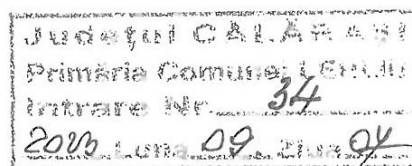 Județul CĂLĂRAȘI
Primăria Comunei LEHLIU
Intrare Nr. 34
Luna 09 Ziua 04